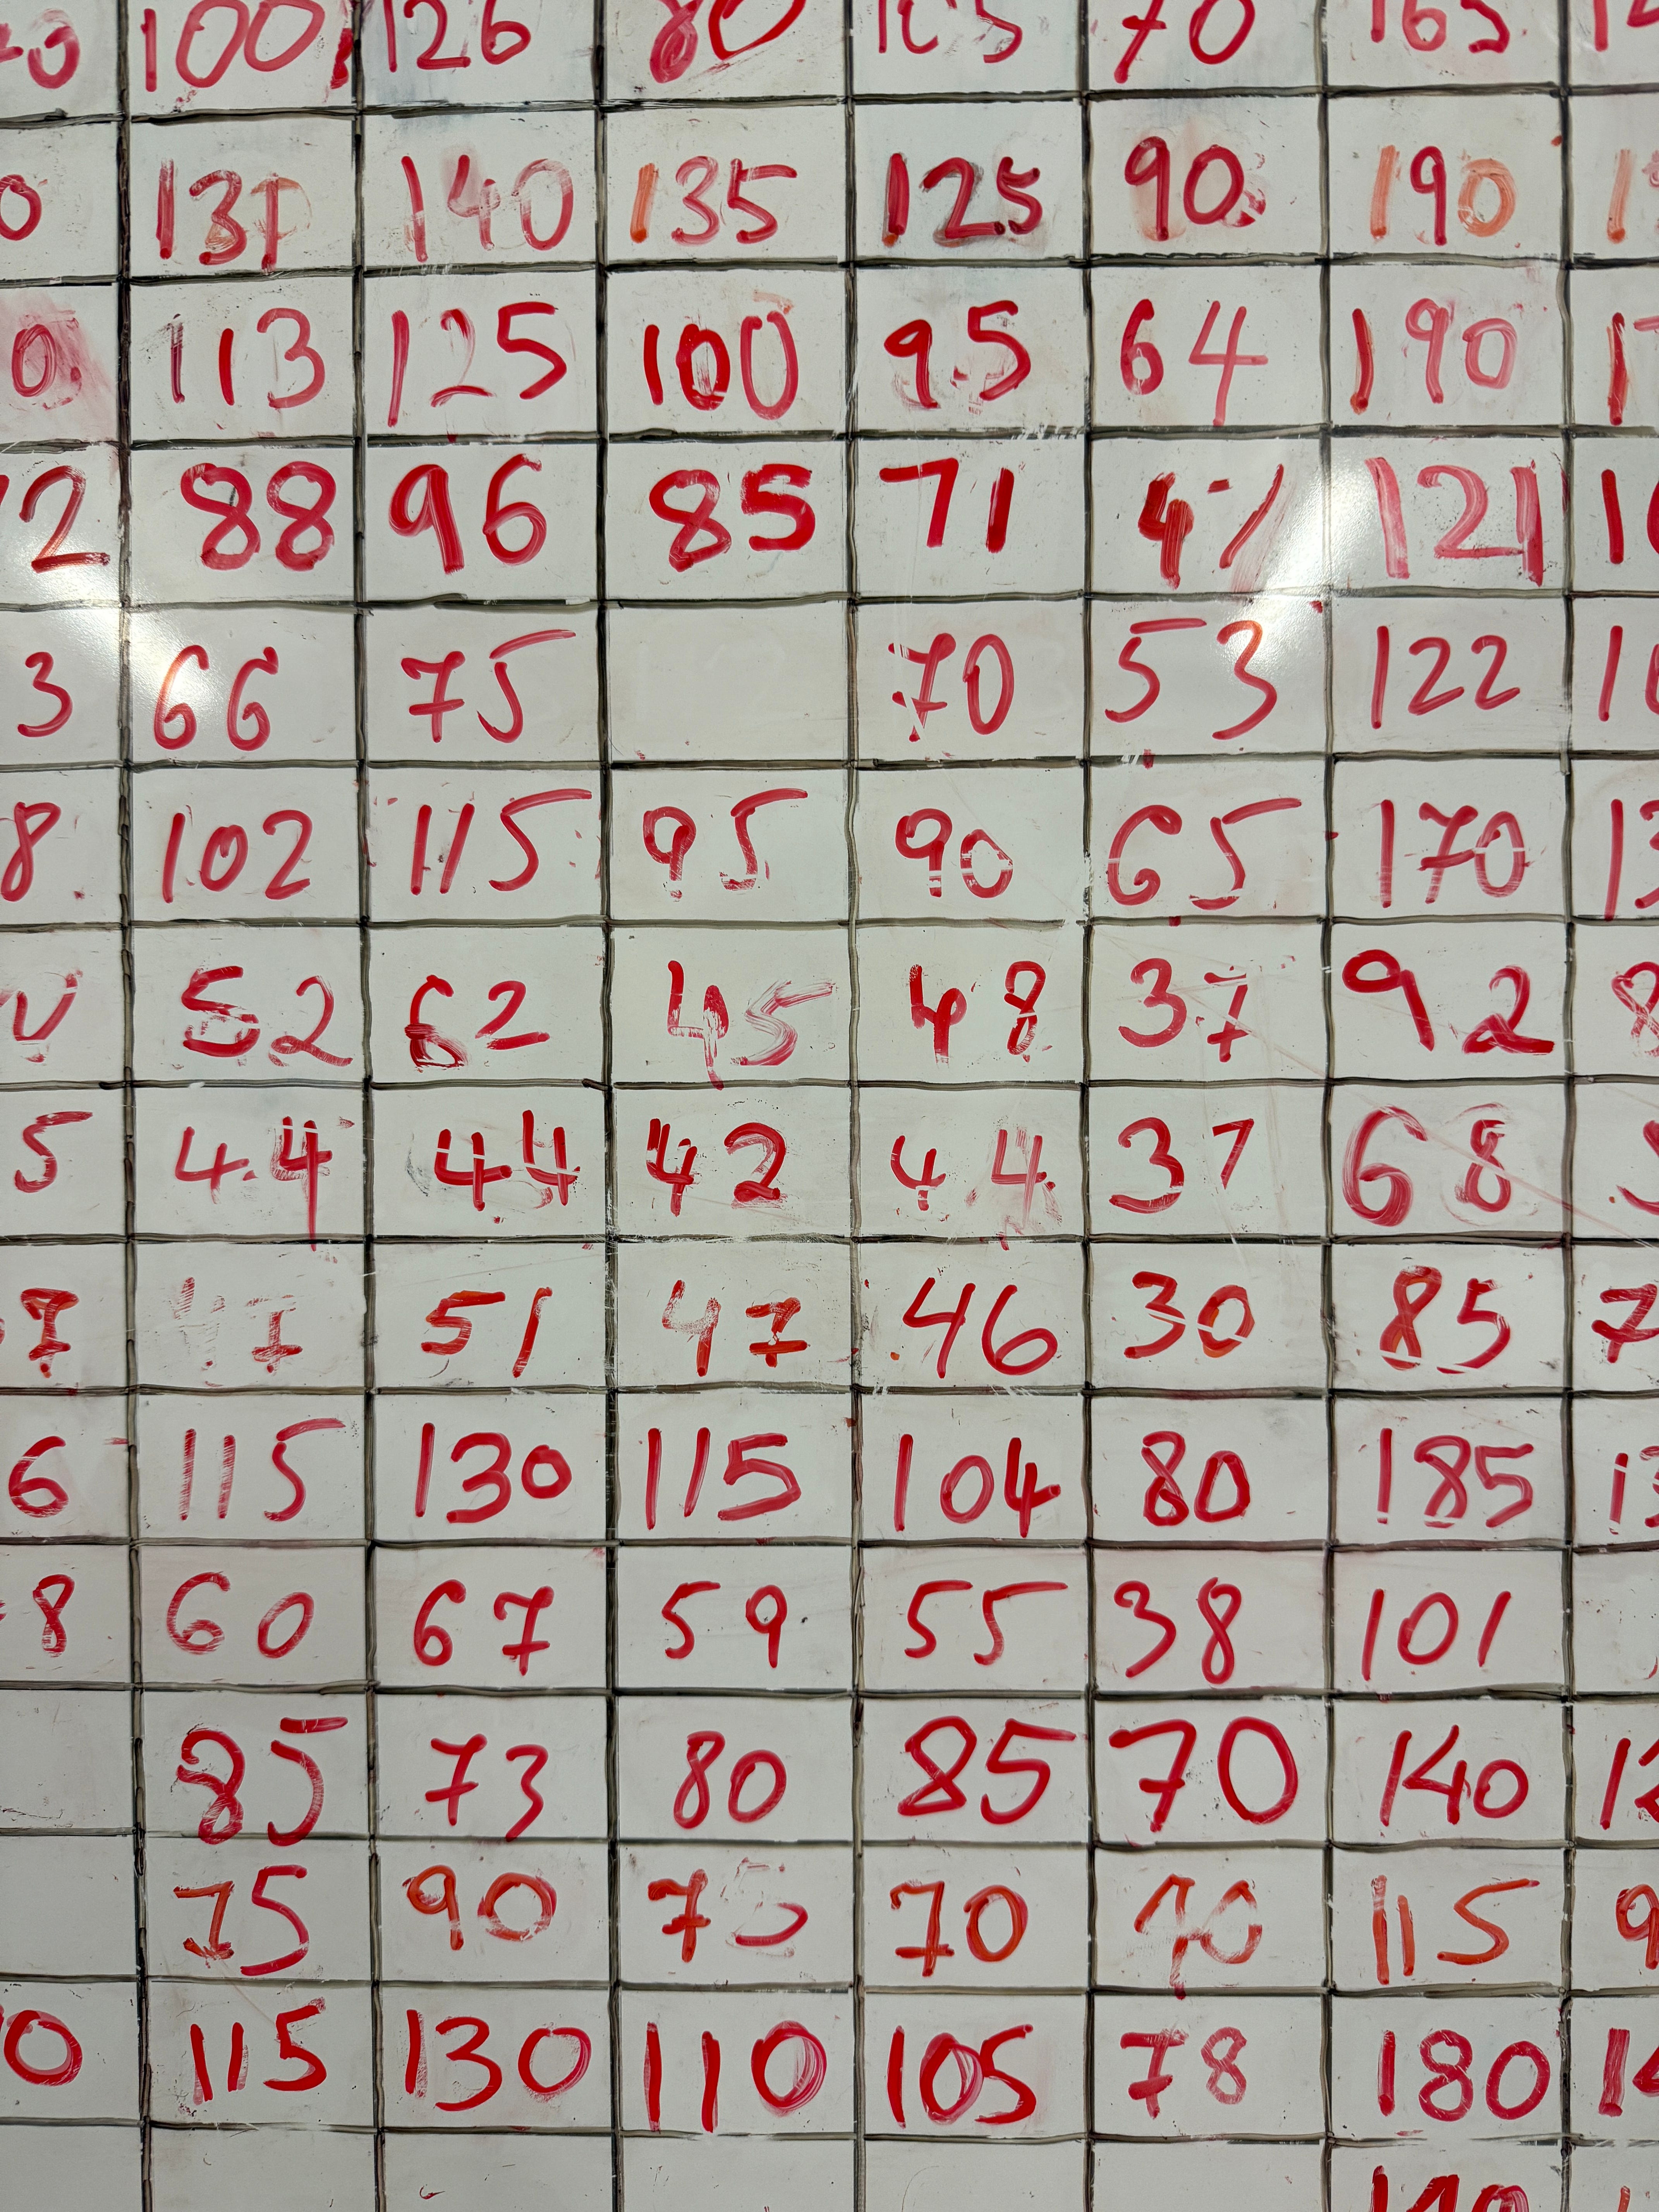 100 126 80 105 70 165
0 137 140 135 125 90 190
0 113 125 100 95 64 190
2 88 96 85 71 47 121
3 66 75 70 53 122
8 102 115 95 90 65 170
52 62 45 48 37 92
5 44 44 42 44 37 68
7 47 51 47 46 30 85 7
6 115 130 115 104 80 185
8 60 67 59 55 38 101
85 73 80 85 70 140
75 90 75 70 115 9
0 115 130 110 105 78 180